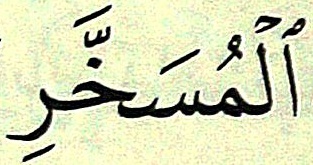 ٱلۡمُسَخَّرِ